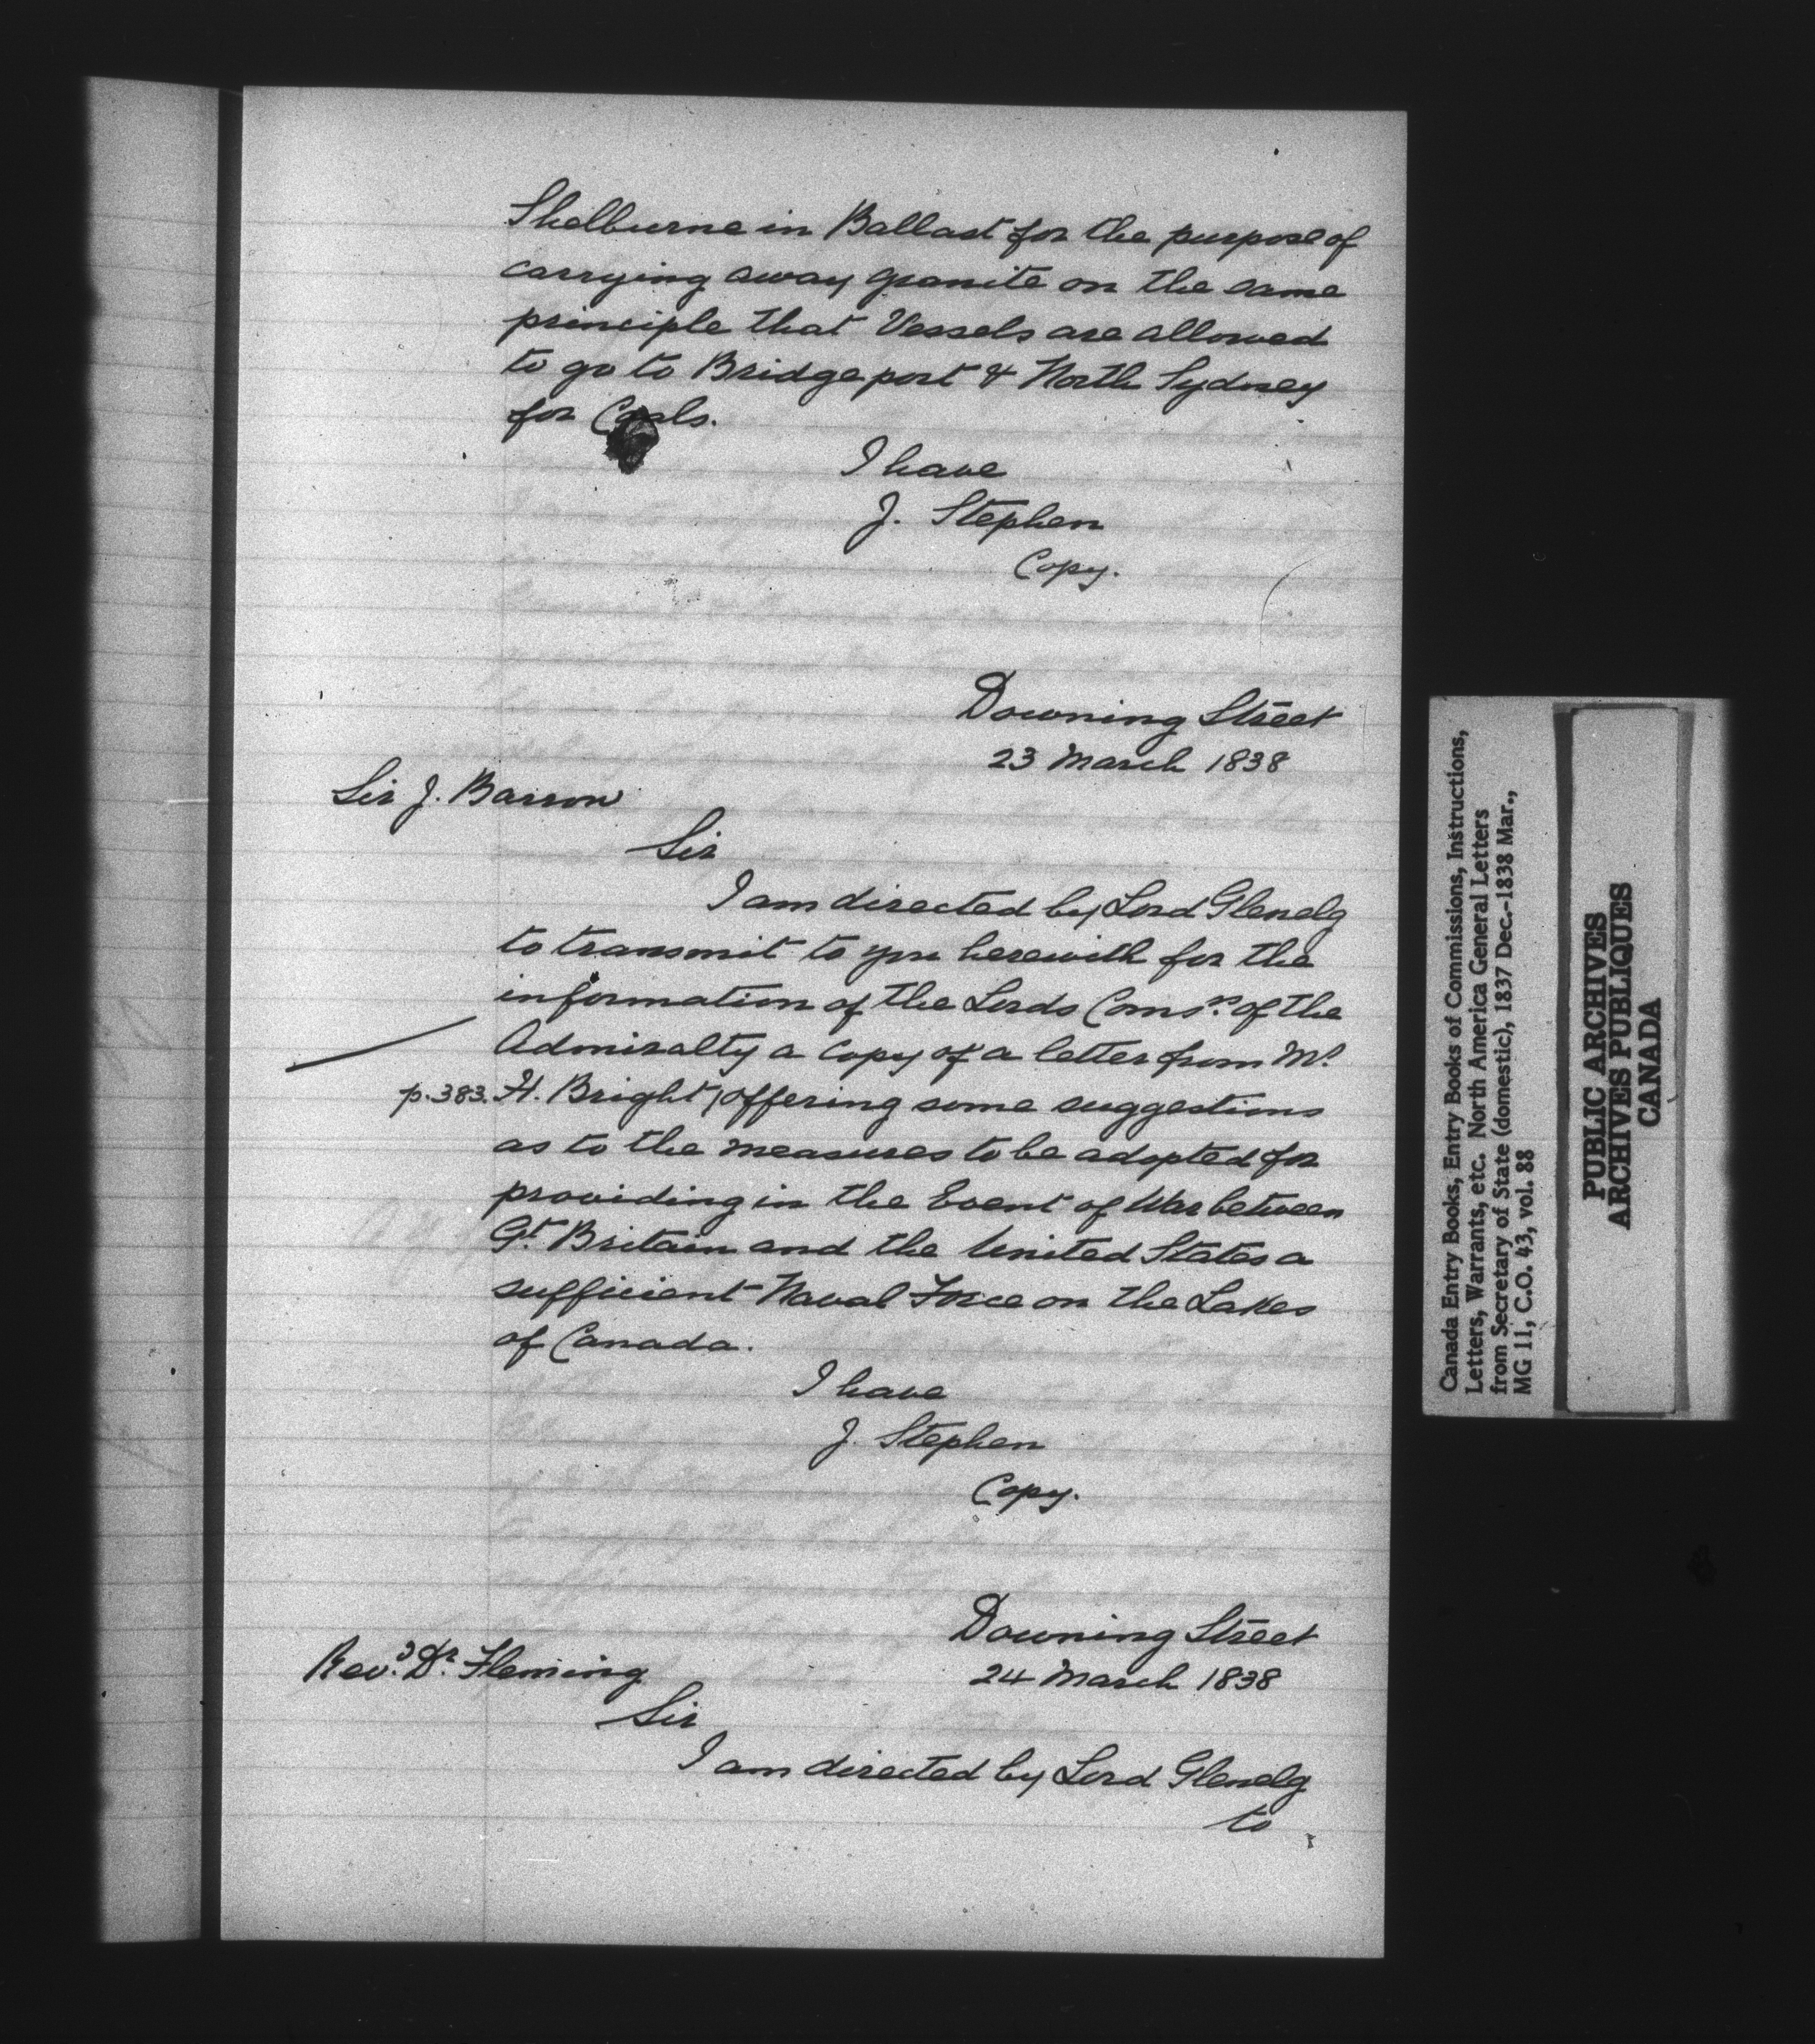 Shelburne in Ballast for the purpose of
carrying away granite on the same
principle that Vessels are allowed
to go to Bridgeport & North Sydney
for Coals.
I have
J. Stephen
Copy.
Downing Street
23 March 1838
Sir J. Barrow
Sir
I am directed by Lord Glenelg
to transmit to you herewith for the
information of the Lords Comsrs. of the
Admiralty a Copy of a letter from Mr.
p.383. H. Bright, offering some suggestions
as to the measures to be adopted for
providing in the Event of War between
Gt. Britain and the United States a
sufficient Naval Force on the Lakes
of Canada.
I have
J. Stephen
Copy.
Downing Street
24 March 1838
Revd. Dr. Fleming
Sir
I am directed by Lord Glenelg
to
Canada Entry Books, Entry Books of Commissions, Instructions,
Letters, Warrants, etc. North America General Letters
from Secretary of State (domestic), 1837 Dec.-1838 Mar.,
MG 11, C.O. 43, vol. 88
PUBLIC ARCHIVES
ARCHIVES PUBLIQUES
CANADA